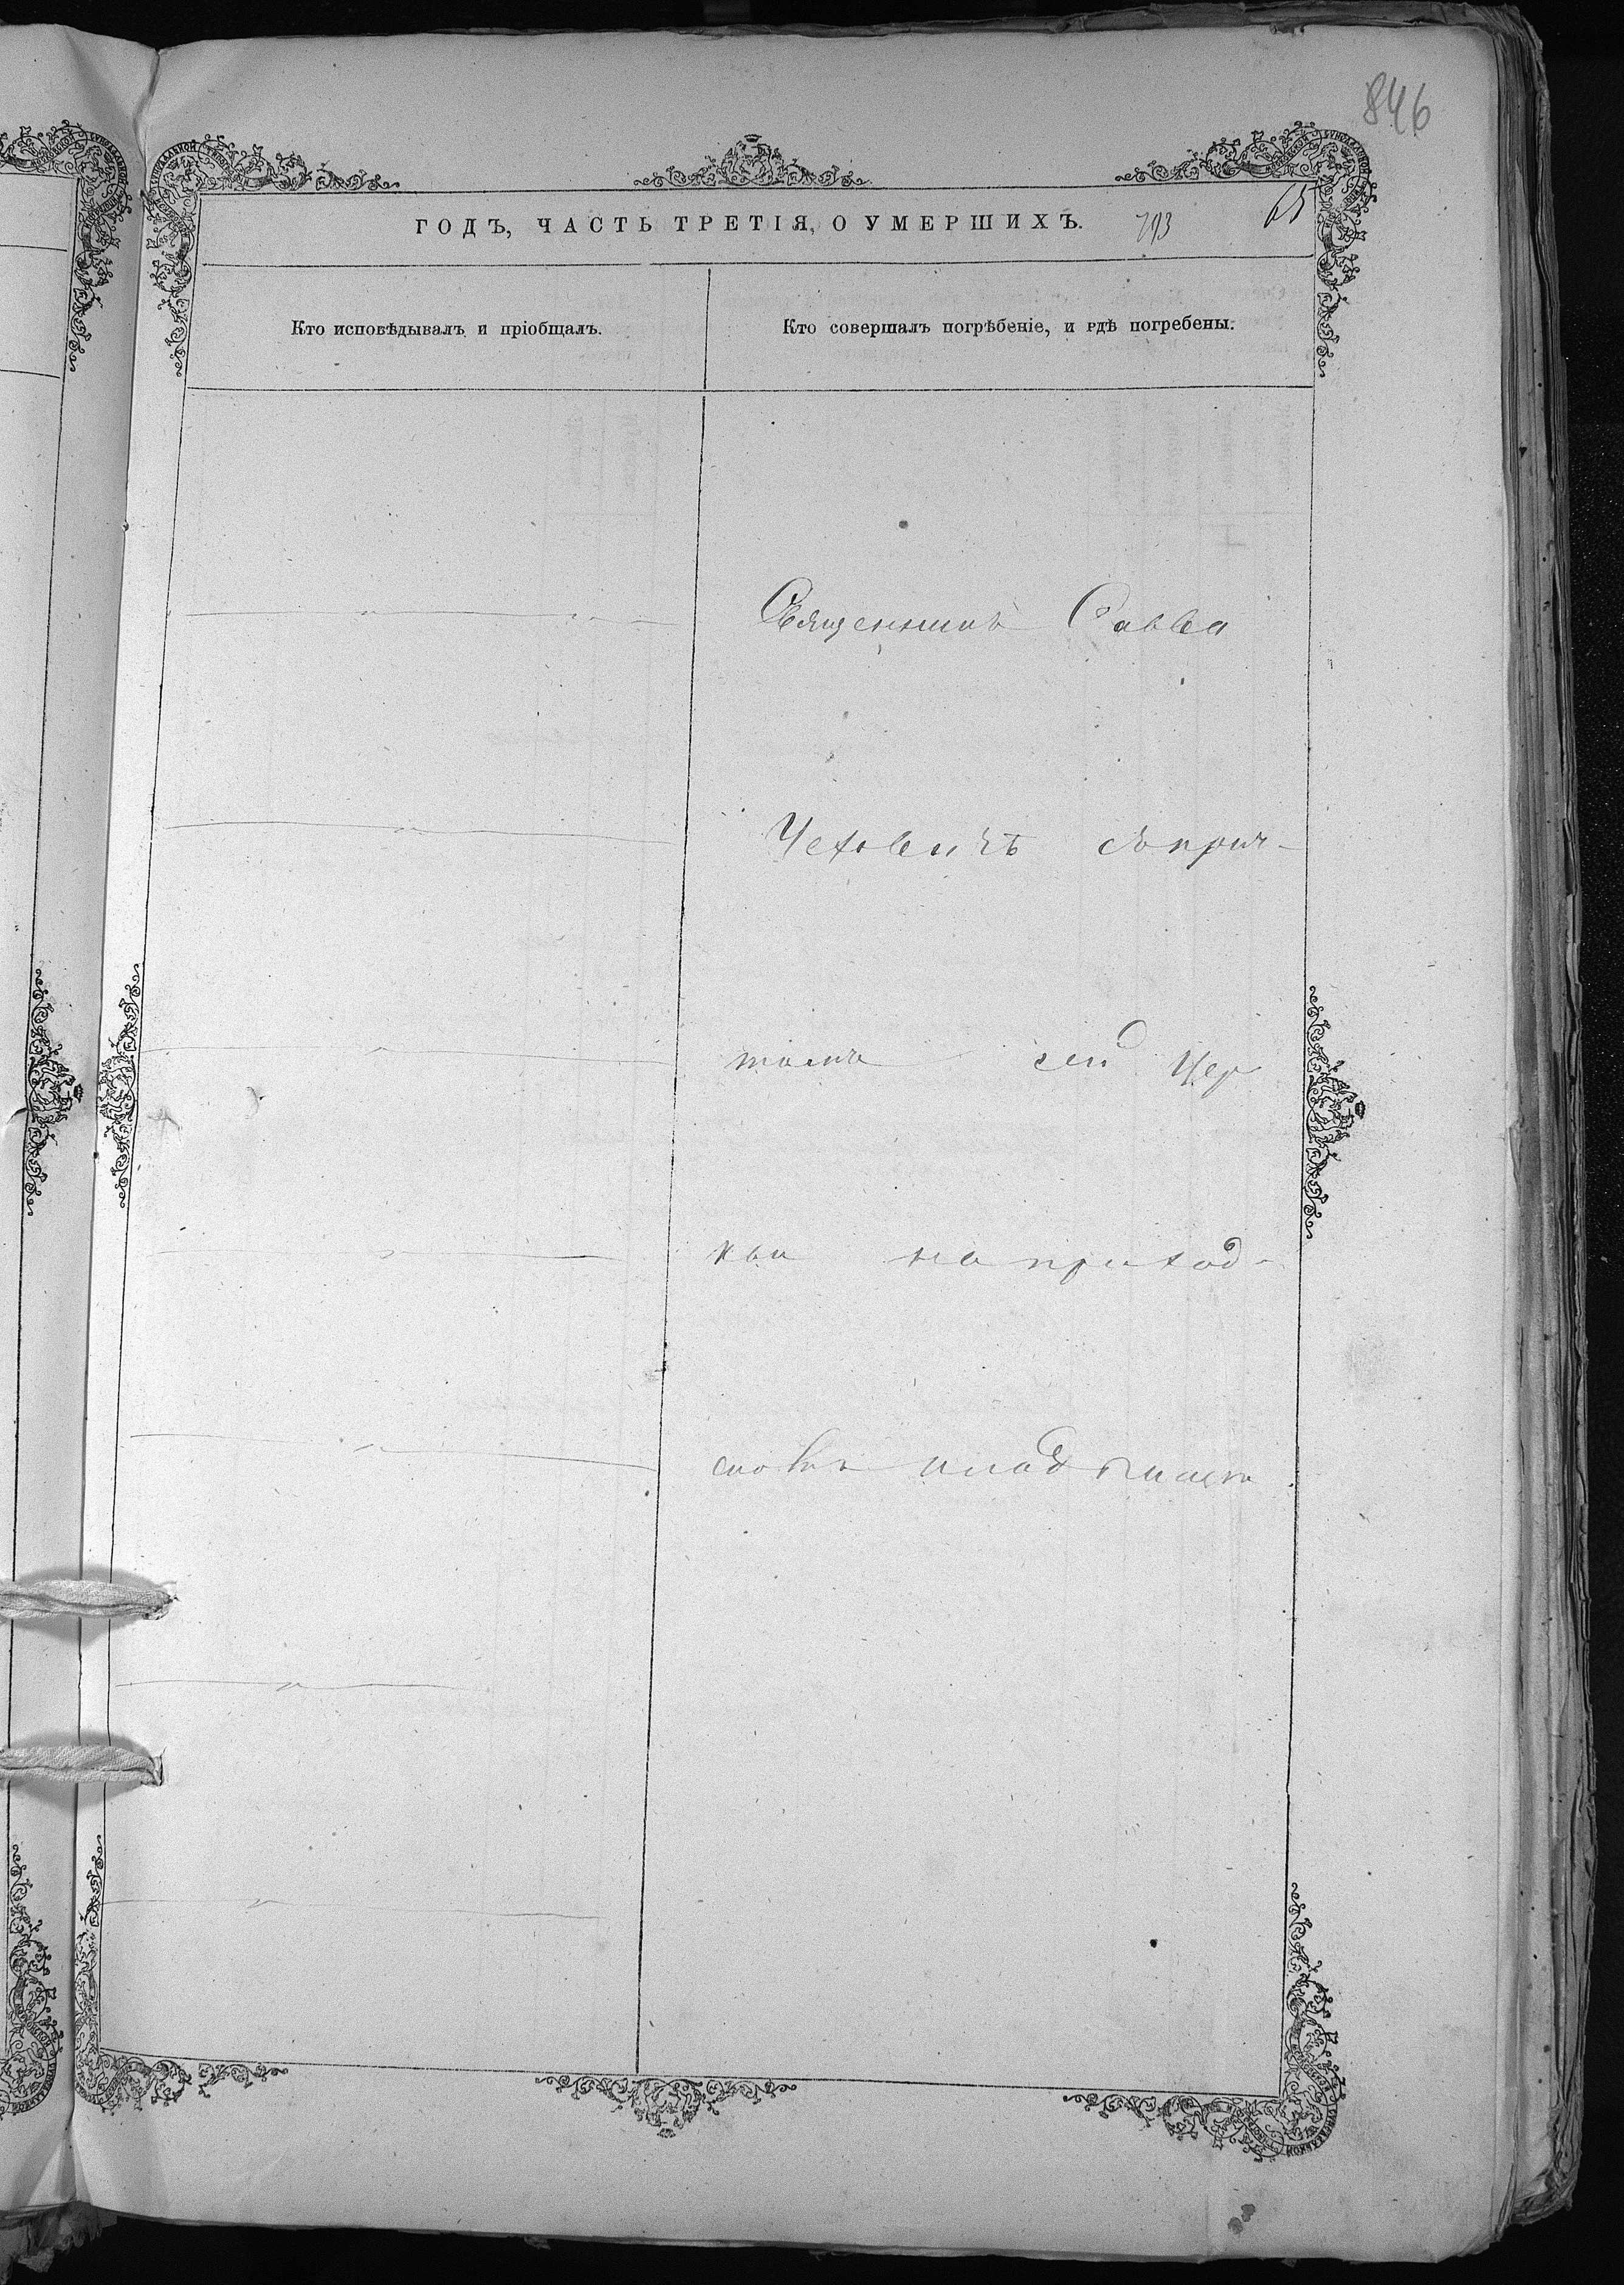 846
ГОДЪ, ЧАСТЬ ТРЕТІЯ, О УМЕРШИХЪ. 793 65
Кто исповѣдывалъ и пріобщалъ.
Кто совершалъ погрѣбеніе, и гдѣ погребены.
Священникъ Савва
Чеховичъ съ прич-
томъ сей Цер
кви на приход-
скомъ кладбищѣ